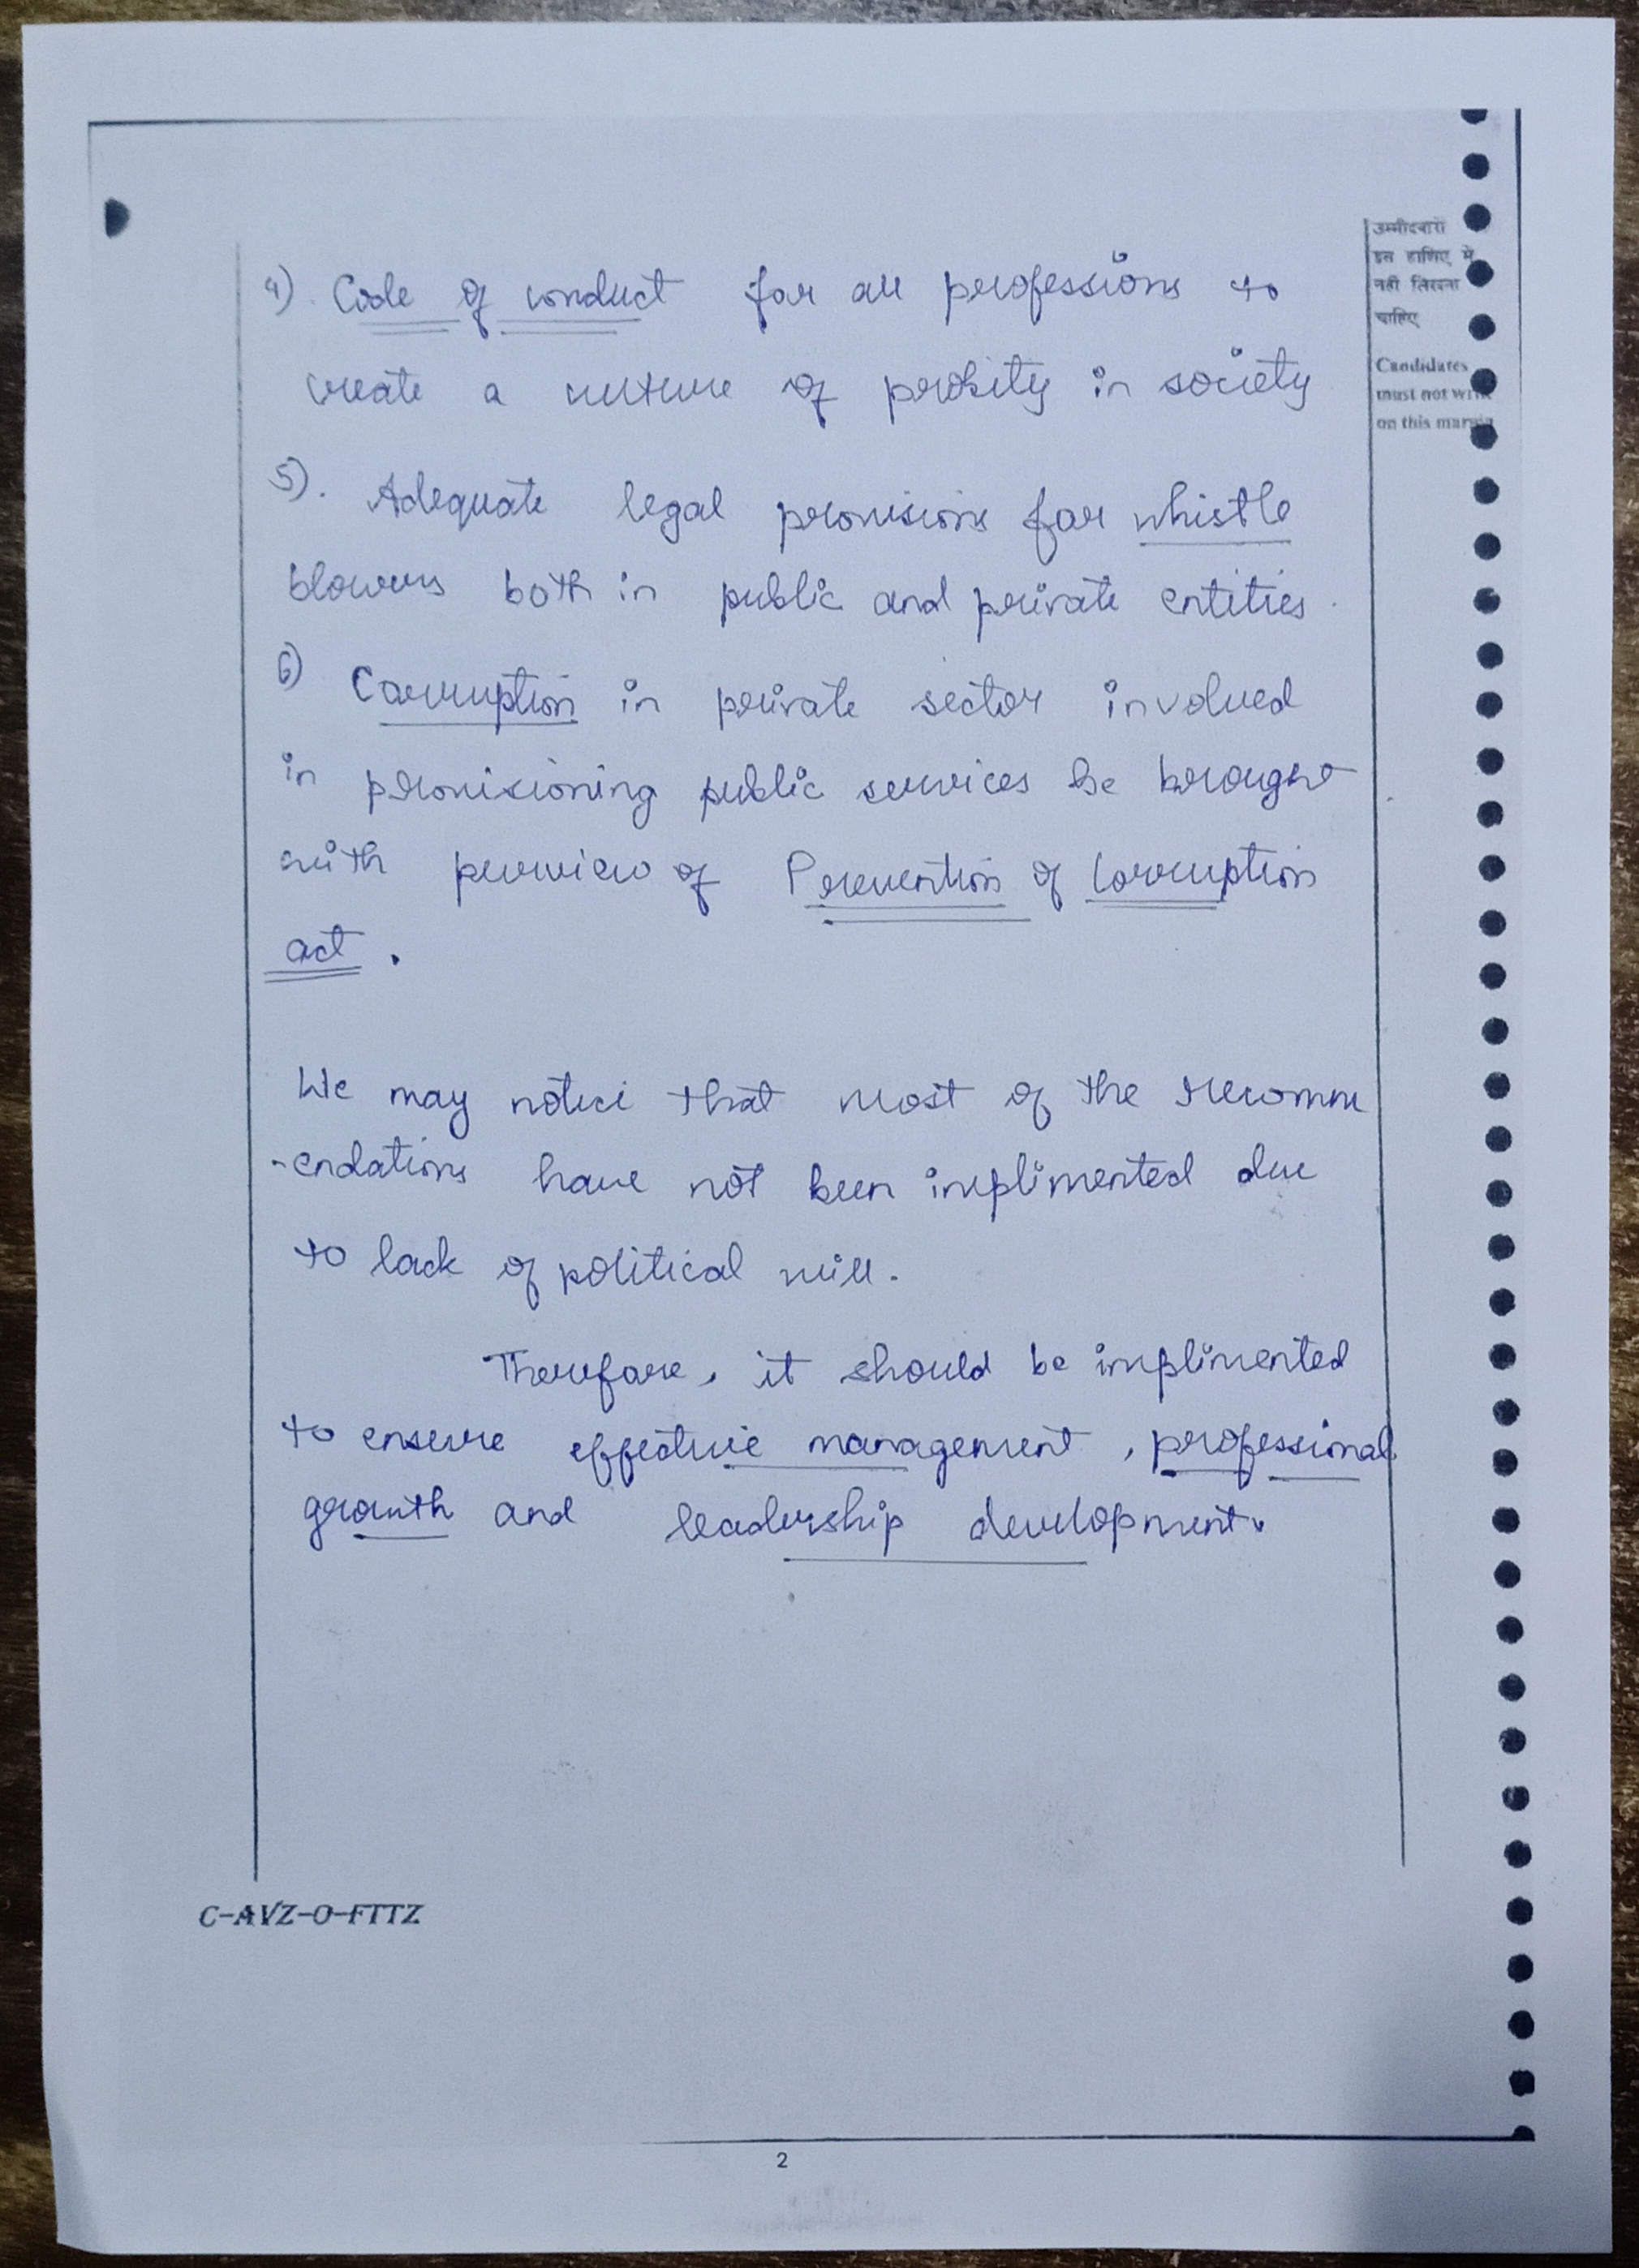 उम्मीदवारों
इस हाशिए में
नहीं लिखना
चाहिए
Candidates
must not write
on this margin
4). Code of conduct for all professions to
create a culture of probity in society
5). Adequate legal provisions for whistle
blowers both in public and private entities.
6) Corruption in private sector involved
in provisioning public services be brought
with purview of Prevention of Corruption
act.
We may notice that most of the recomm
-endations have not been implimented due
to lack of political will.
Therefore, it should be implimented
to ensure effective management, professional
growth and leadership development.
C-AVZ-O-FTTZ
2